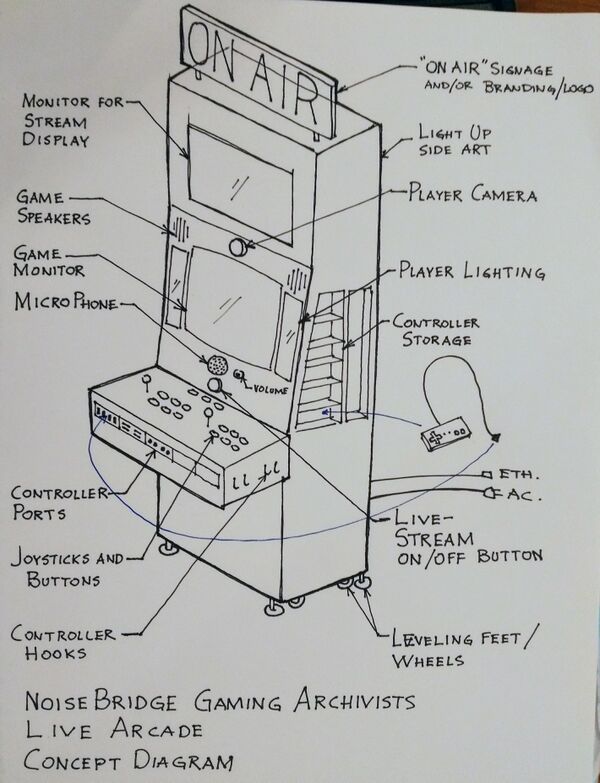 ON AIR
"ON AIR" SIGNAGE
AND/OR BRANDING/LOGO
MONITOR FOR
STREAM
DISPLAY
LIGHT UP
SIDE ART
GAME
SPEAKERS
PLAYER CAMERA
GAME
MONITOR
PLAYER LIGHTING
MICROPHONE
CONTROLLER
STORAGE
VOLUME
ETH.
AC.
CONTROLLER
PORTS
LIVE-
STREAM
ON/OFF BUTTON
JOYSTICKS AND
BUTTONS
CONTROLLER
HOOKS
LEVELING FEET/
WHEELS
NOISEBRIDGE GAMING ARCHIVISTS
LIVE ARCADE
CONCEPT DIAGRAM